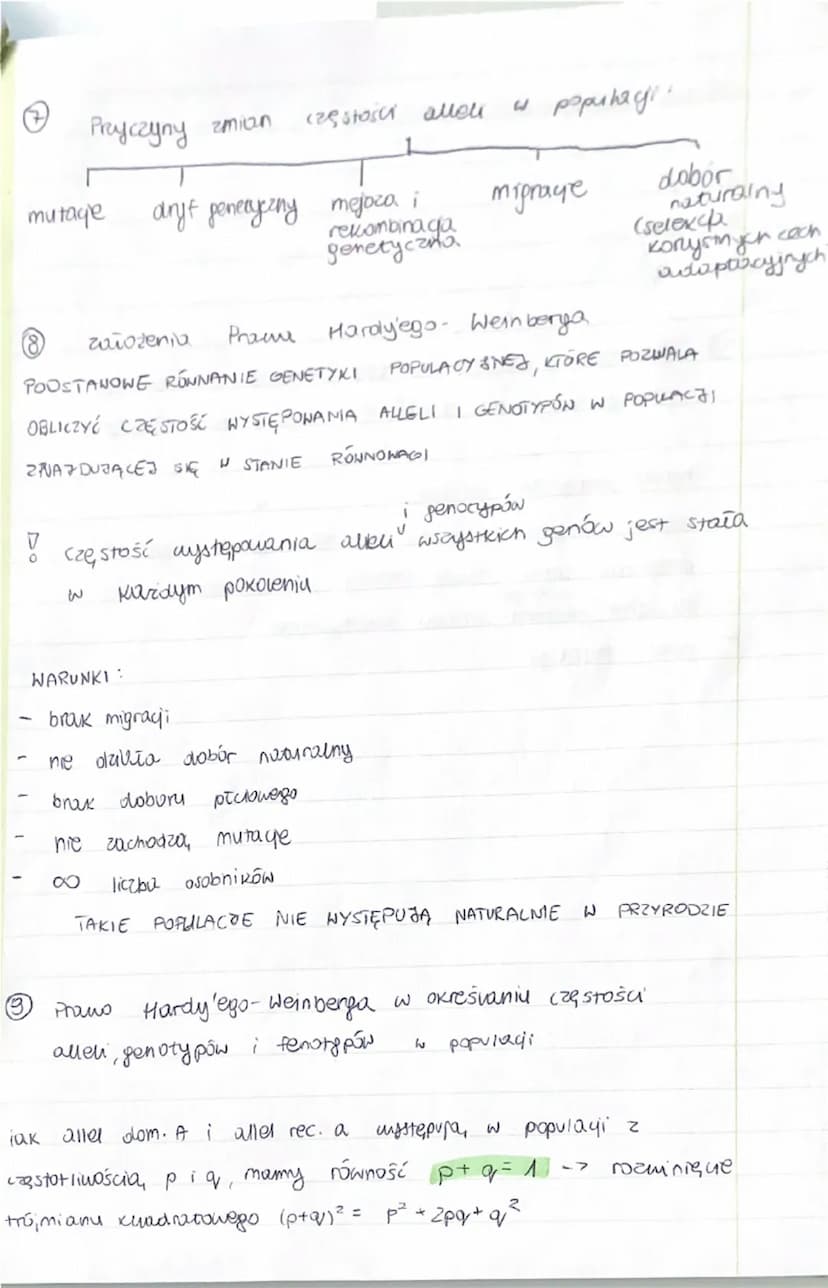 ⑦ Przyczyny zmian częstości alleli w populacji:
mutacje dryf genetyczny mejoza i rekombinacja genetyczna migracje dobór naturalny (selekcja korzystnych cech adaptacyjnych
⑧ założenia Prawa Hardy'ego-Weinberga
PODSTAWOWE RÓWNANIE GENETYKI POPULACYJNEJ, KTÓRE POZWALA
OBLICZYĆ CZĘSTOŚĆ WYSTĘPOWANIA ALLELI I GENOTYPÓW W POPULACJI
ZNAJDUJĄCEJ SIĘ W STANIE RÓWNOWAGI
i genotypów
! częstość występowania alleli wszystkich genów jest stała
w każdym pokoleniu
WARUNKI:
- brak migracji
- nie działa dobór naturalny
- brak doboru płciowego
- nie zachodzą mutacje
- ∞ liczba osobników
TAKIE POPULACJE NIE WYSTĘPUJĄ NATURALNIE W PRZYRODZIE
⑨ Prawo Hardy'ego-Weinberga w określaniu częstości
alleli, genotypów i fenotypów w populacji
jak allel dom. A i allel rec. a występują w populacji z
częstotliwością p i q, mamy równość p + q = 1 -> rozwinięcie
trójmianu kwadratowego (p+q)² = p² + 2pq + q²